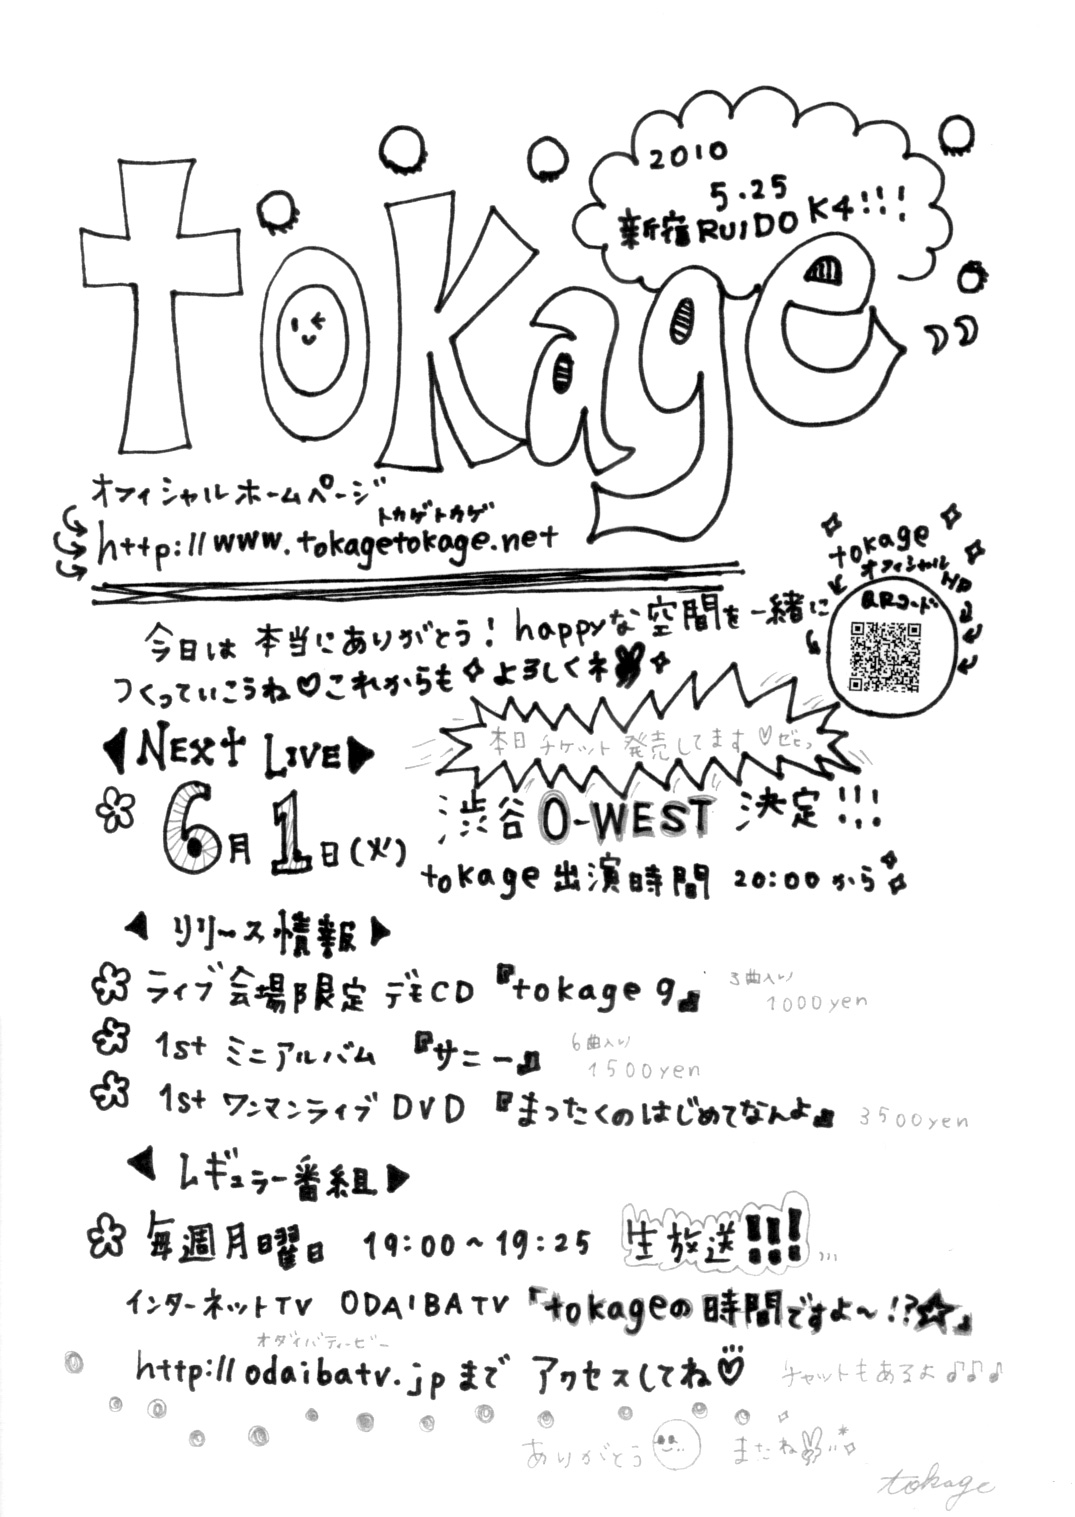 2010
5.25
新宿RUIDO K4!!!
tokage
オフィシャルホームページ
トカゲトカゲ
http://www.tokagetokage.net
tokage
オフィシャル
HP
QRコード
今日は 本当にありがとう! happyな空間を一緒に
つくっていこうね♡これからも✧よろしくネ✌✧
◀NExt LIVE▶
本日チケット発売してます♡ぜひっ
6月1日(火)
渋谷 O-WEST 決定!!!
tokage 出演時間 20:00から
◀リリース情報▶
ライブ会場限定 デモCD 『tokage 9』 3曲入り
1000yen
1st ミニアルバム 『サニー』 6曲入り
1500yen
1st ワンマンライブDVD 『まったくのはじめてなんよ』 3500yen
◀レギュラー番組▶
毎週月曜日 19:00~19:25 生放送!!!
インターネットTV ODAIBATV 「tokageの時間ですよ~!?☆」
オダイバティービー
http://odaibatv.jpまで アクセスしてね♡ チャットもあるよ♪♪♪
ありがとう またね✌
tokage